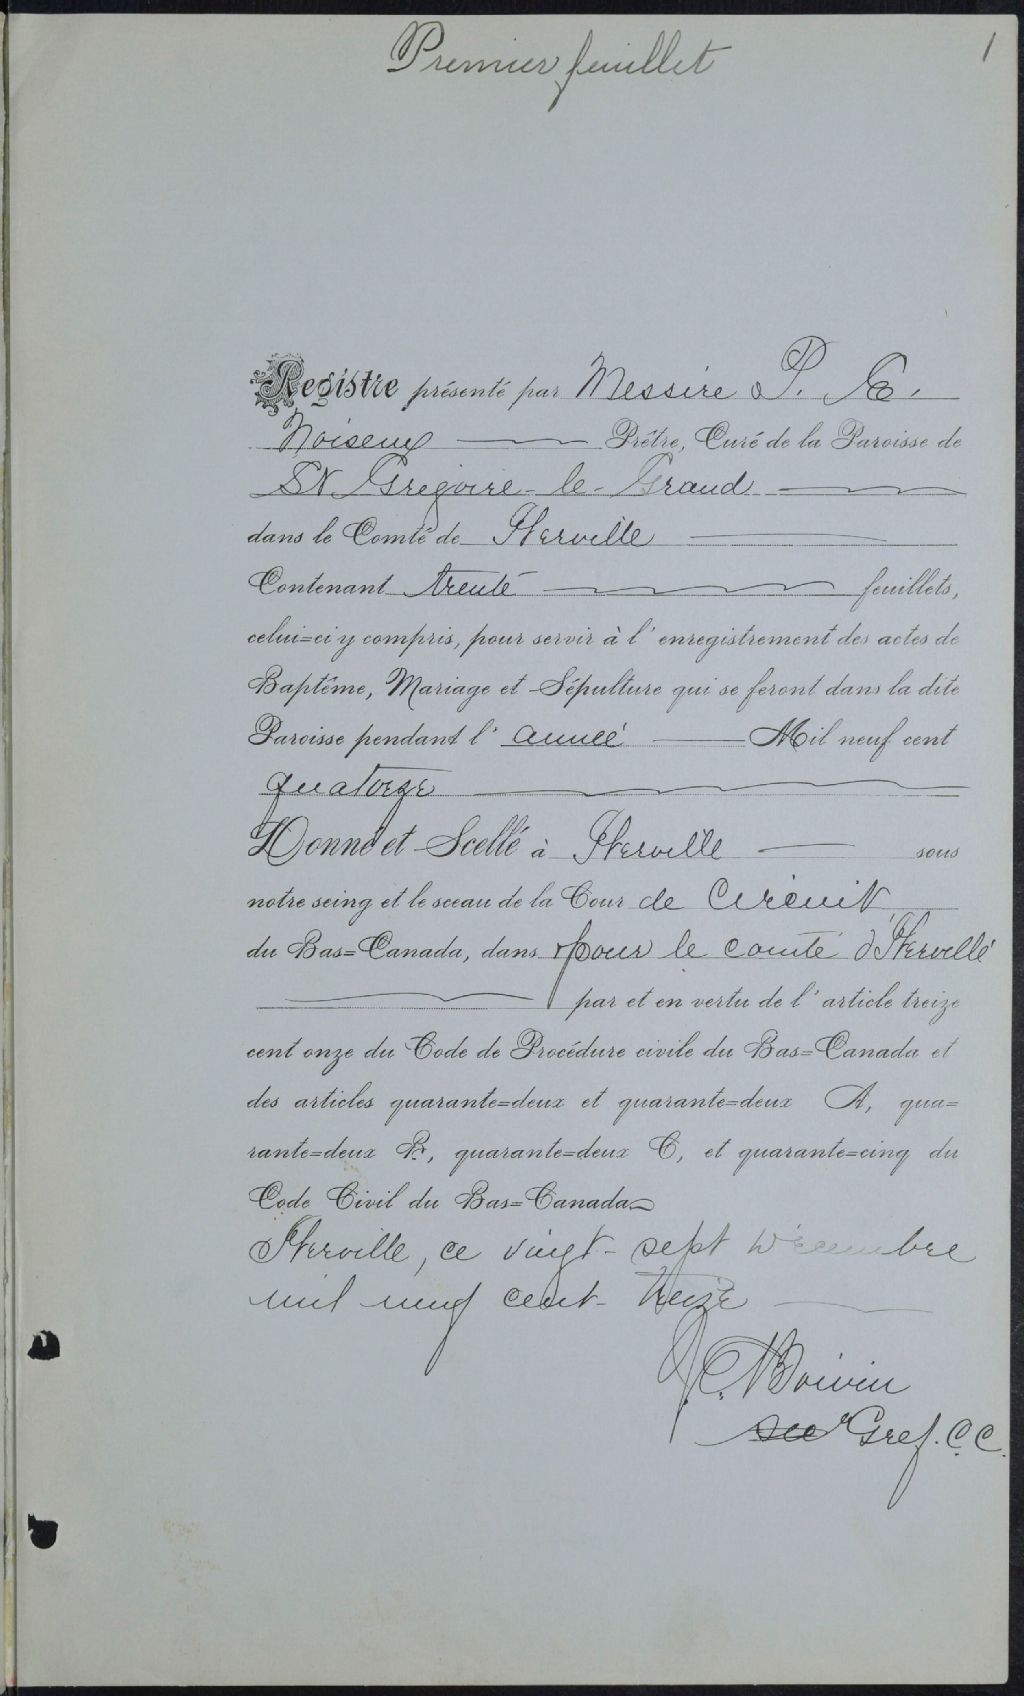 Premier feuillet
1
Registre présenté par Messire P. E.
Noiseux Prêtre, Curé de la Paroisse de
St Gregoire-le-Grand
dans le Comté de Iberville
Contenant trente feuillets,
celui=ci y compris, pour servir à l'enregistrement des actes de
Baptême, Mariage et Sépulture qui se feront dans la dite
Paroisse pendant l'année Mil neuf cent
quatorze
Donné et Scellé à Iberville sous
notre seing et le sceau de la Cour de Circuit
du Bas=Canada, dans pour le comté d'Iberville
par et en vertu de l'article treize
cent onze du Code de Procédure civile du Bas=Canada et
des articles quarante=deux et quarante=deux A, qua=
rante=deux B, quarante=deux C, et quarante=cinq du
Code Civil du Bas=Canada
Iberville, ce vingt-sept Décembre
mil neuf cent-treize
C. Boivin
Gref. C. C.